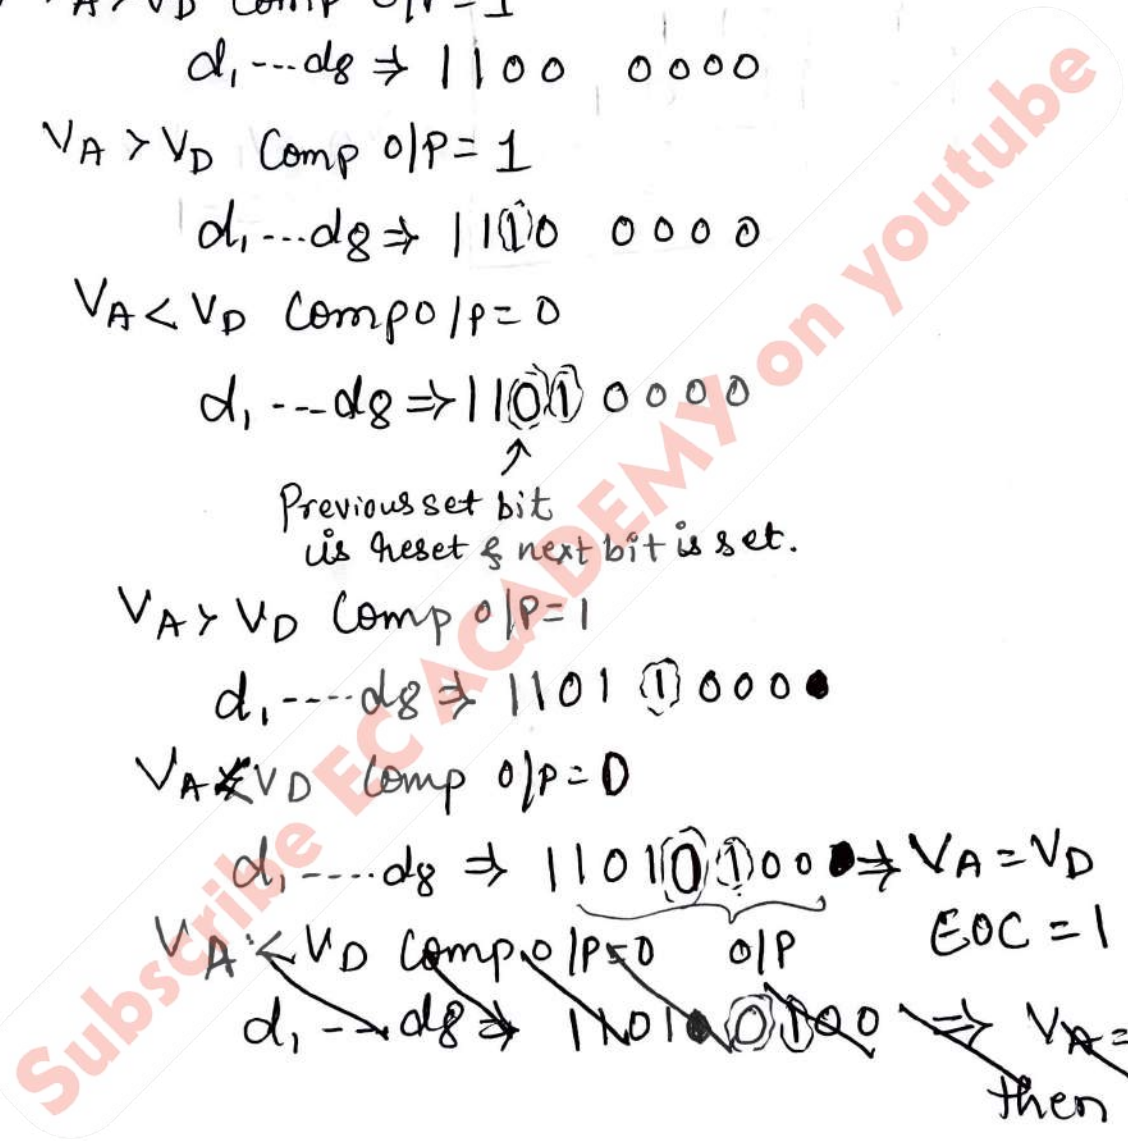 VA > VD Comp O/P = 1
d1 ---d8 ⇒ 1100 0000
VA > VD Comp O/P = 1
d1 ...d8 ⇒ 1110 0000
VA < VD Comp O/P = 0
d1 ---d8 ⇒ 1101 0000
Previous set bit
is reset & next bit is set.
VA > VD Comp O/P = 1
d1 ----d8 ⇒ 1101 1000
VA < VD Comp O/P = 0
d1 ----d8 ⇒ 11010100 ⇒ VA = VD
EOC = 1
VA < VD Comp O/P = 0 O/P
d1 ---d8 ⇒ 1101 0100 ⇒ VA =
then
Subscribe EC ACADEMY on youtube